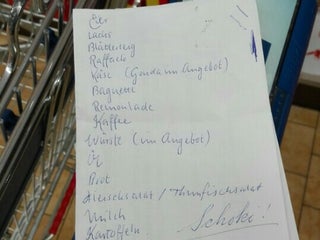 Eier
Lachs
Blätterteig
Raffaelo
Käse (Gouda im Angebot)
Baguette
Remoulade
Kaffee
Würste (im Angebot)
Öl
Brot
Fleischsalat / Thunfischsalat
Milch
Kartoffeln
Schoki!